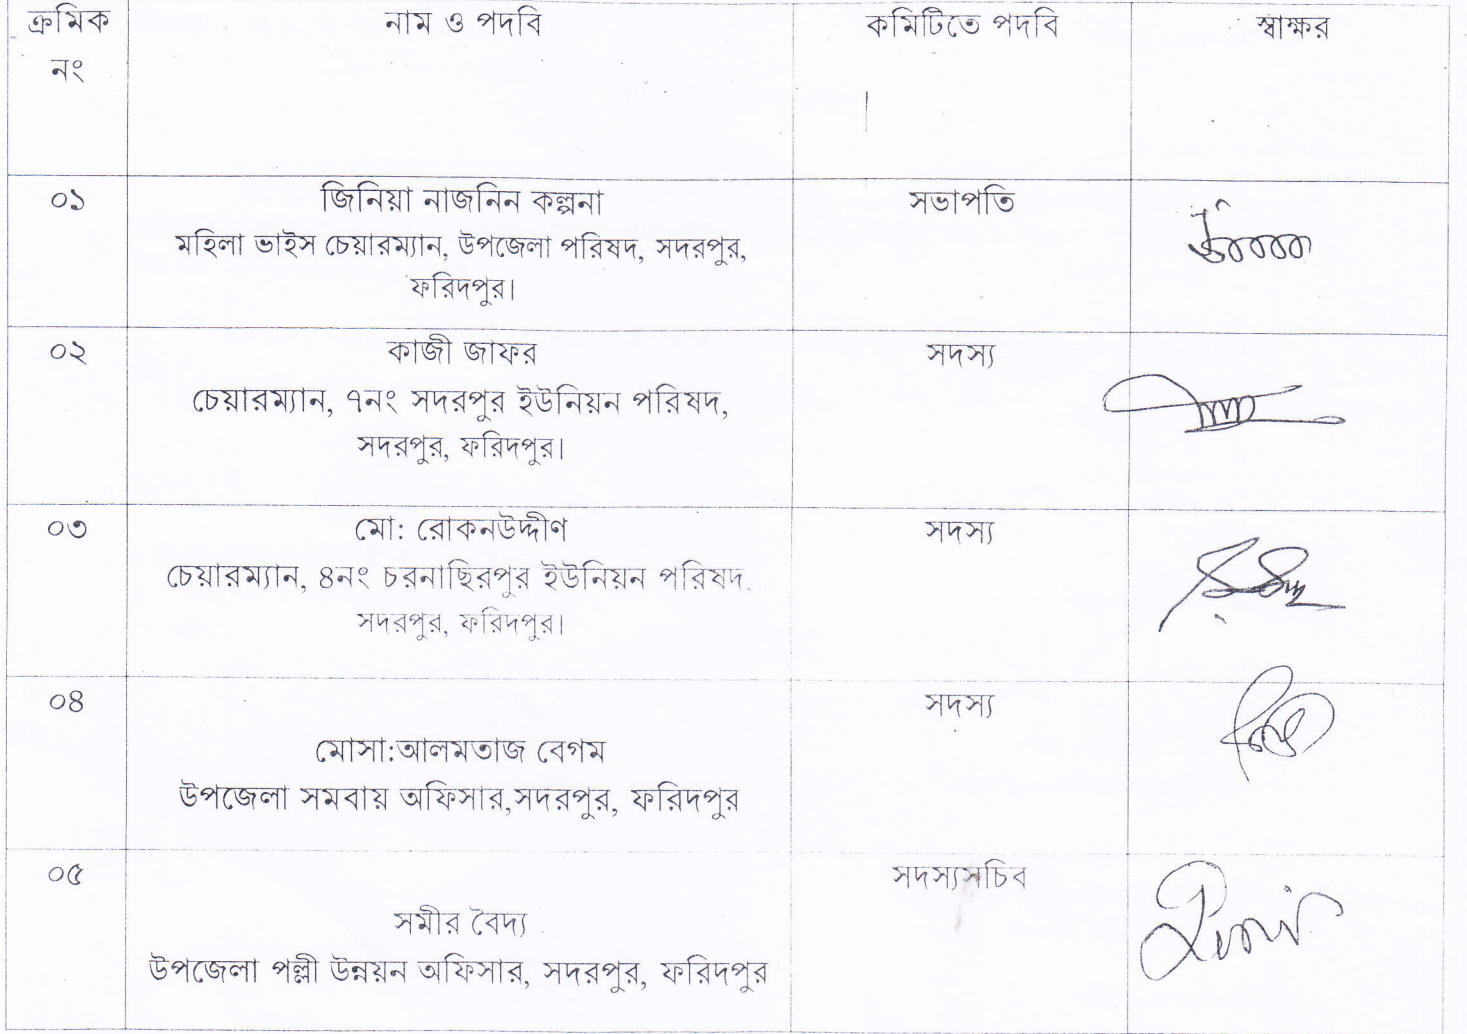 ক্রমিক নাম ও পদবি কমিটিতে পদবি স্বাক্ষর
নং
০১ জিনিয়া নাজনিন কল্পনা সভাপতি
মহিলা ভাইস চেয়ারম্যান, উপজেলা পরিষদ, সদরপুর,
ফরিদপুর।
০২ কাজী জাফর সদস্য
চেয়ারম্যান, ৭নং সদরপুর ইউনিয়ন পরিষদ,
সদরপুর, ফরিদপুর।
০৩ মো: রোকনউদ্দীণ সদস্য
চেয়ারম্যান, ৪নং চরনাছিরপুর ইউনিয়ন পরিষদ.
সদরপুর, ফরিদপুর।
০৪ সদস্য
মোসা:আলমতাজ বেগম
উপজেলা সমবায় অফিসার,সদরপুর, ফরিদপুর
০৫ সদস্যসচিব
সমীর বৈদ্য
উপজেলা পল্লী উন্নয়ন অফিসার, সদরপুর, ফরিদপুর